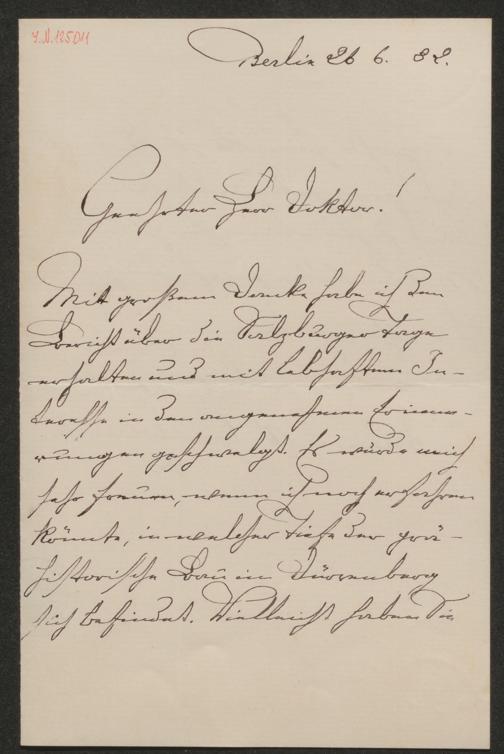 J.N. 125011
Berlin 26 6. 82.
Geehrter Herr Doktor!
Mit großem Danke habe ich den
Bericht über die Salzburger Tage
erhalten und mit lebhaftem In-
teresse in den angenehmen Erinne-
rungen geschwelgt. Es würde mich
sehr freuen, wenn ich noch erfahren
könnte, in welcher Tiefe der prä-
historische Bau in Dürrenberg
sich befindet. Vielleicht haben Sie